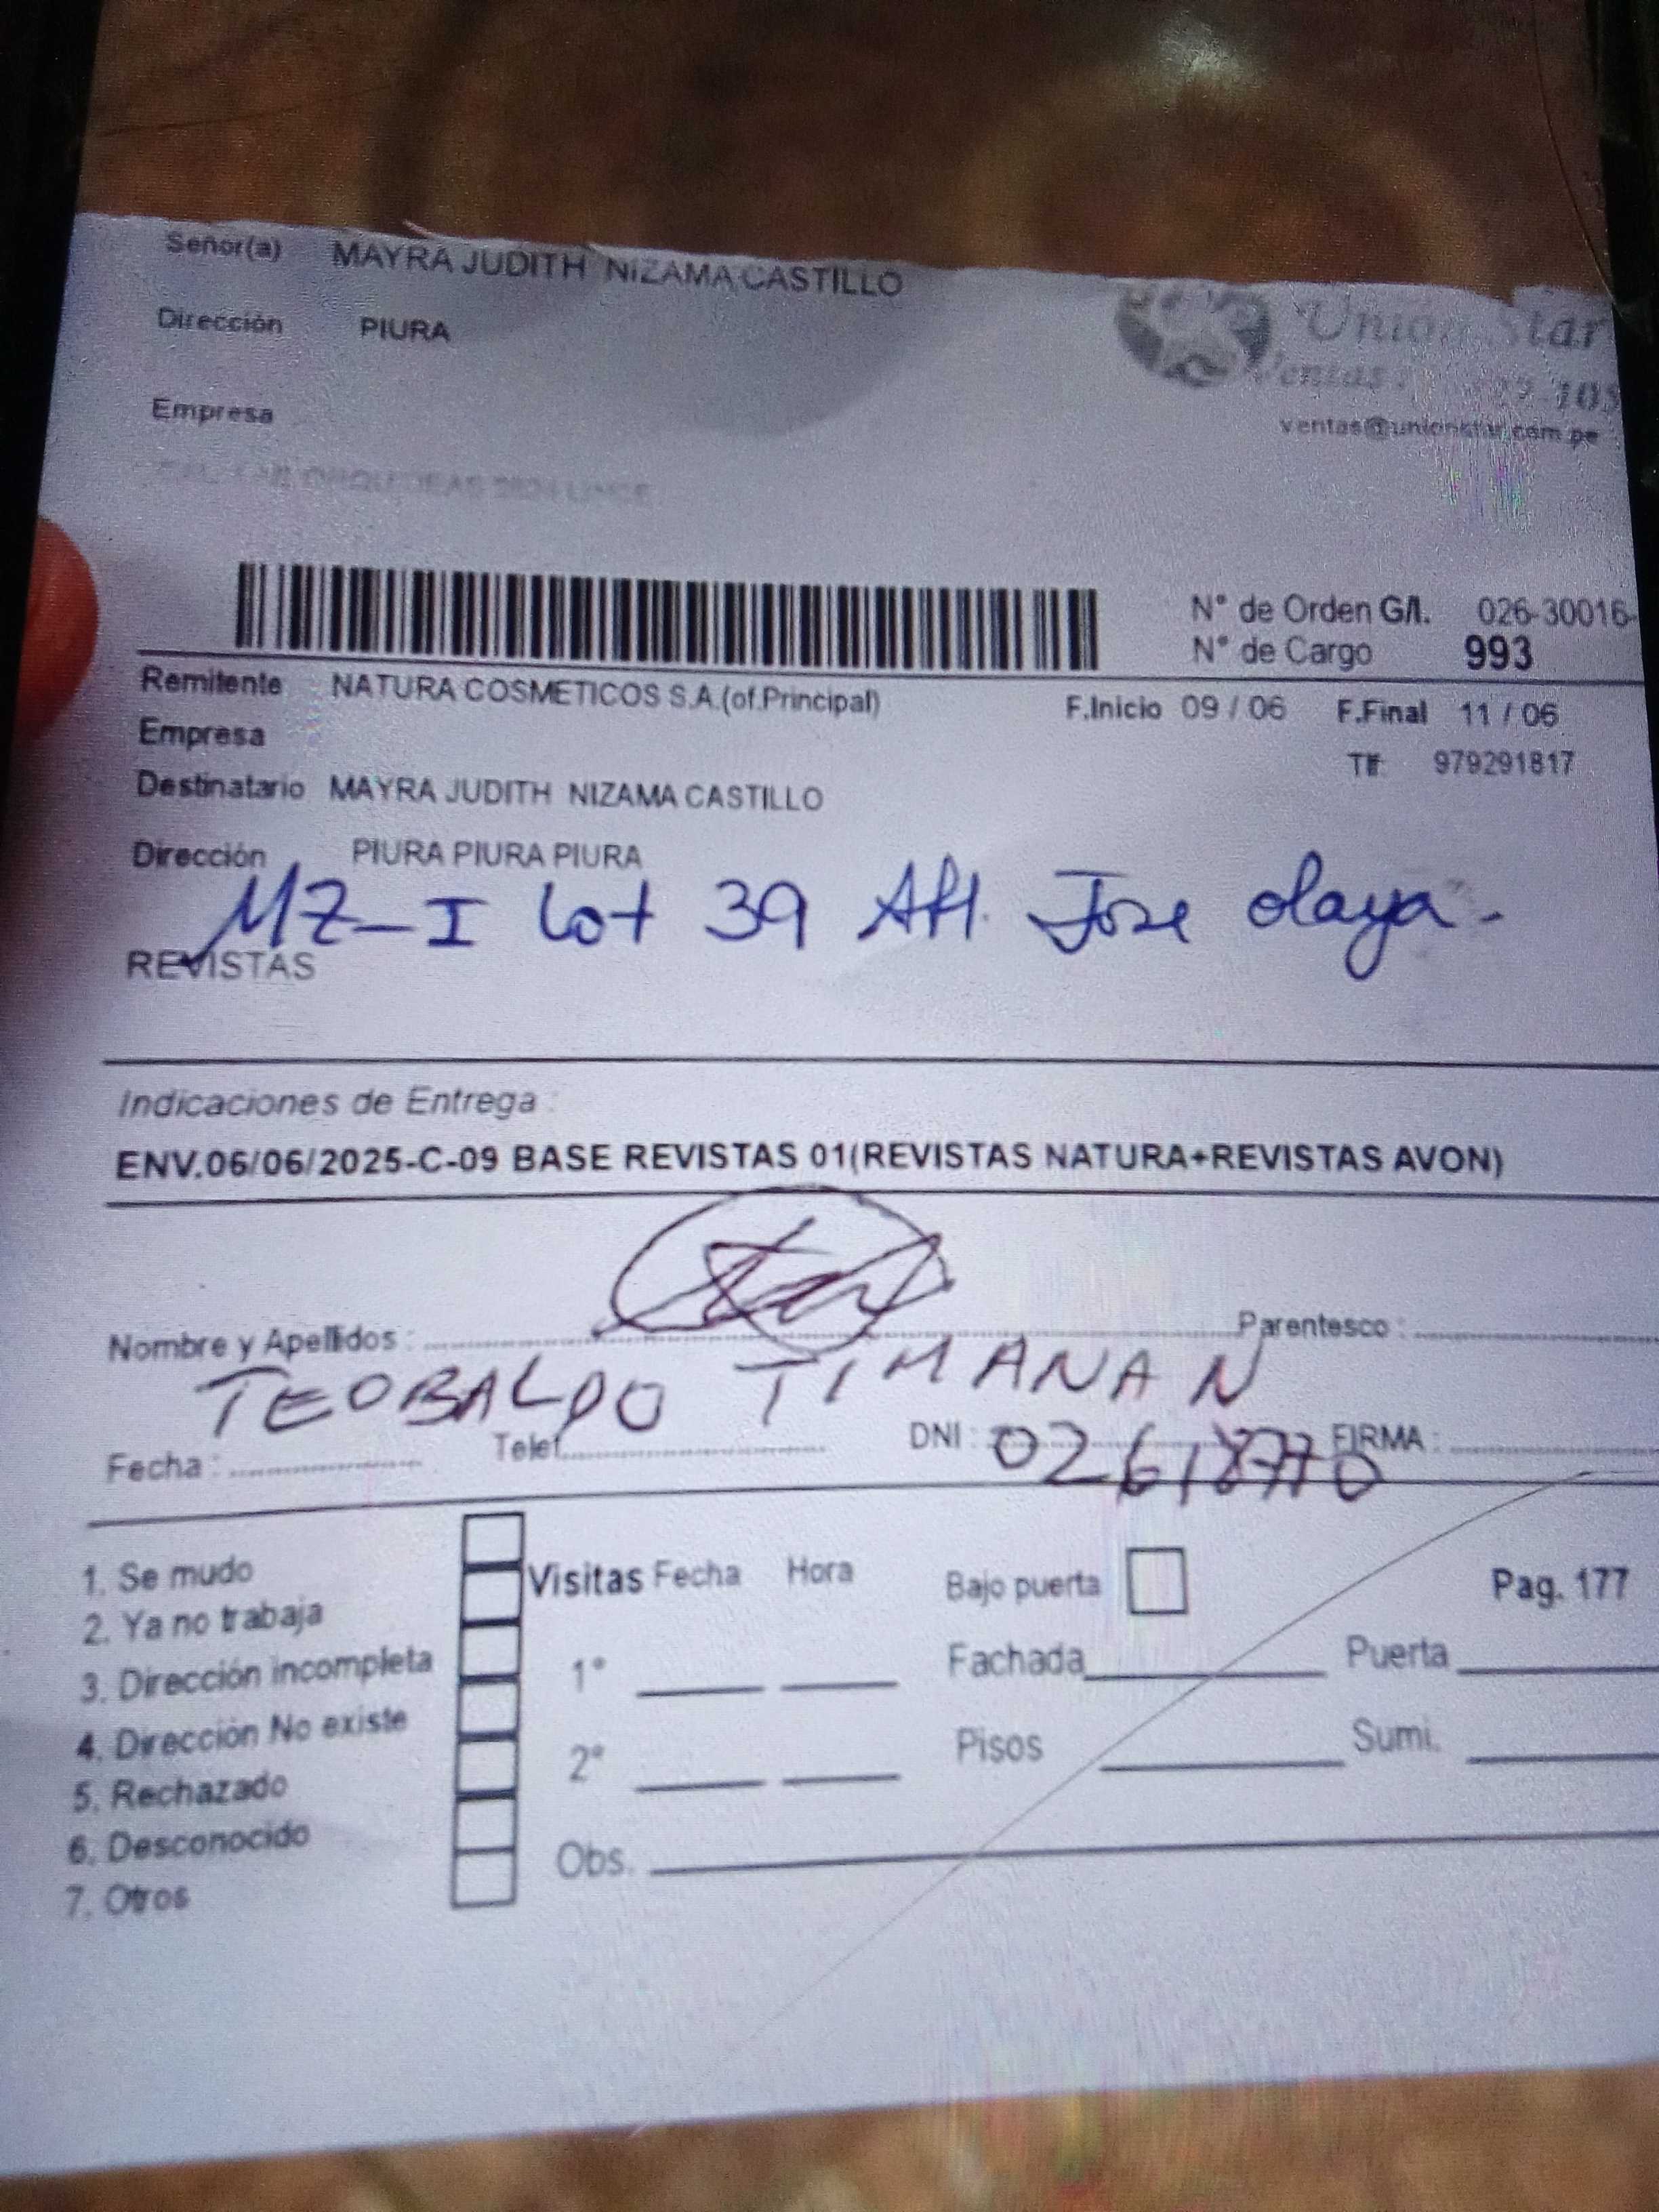 Señor(a) MAYRA JUDITH NIZAMA CASTILLO
Dirección PIURA
Union Star
Ventas :
ventas@unionstar.com.pe
Empresa
N° de Orden G/I. 026-30016-
N° de Cargo 993
Remitente : NATURA COSMETICOS S.A.(of.Principal) F.Inicio 09 / 06 F.Final 11 / 06
Empresa
Tlf: 979291817
Destinatario MAYRA JUDITH NIZAMA CASTILLO
Dirección PIURA PIURA PIURA
MZ-I Lot 39 AH. Jose Olaya-
REVISTAS
Indicaciones de Entrega :
ENV.06/06/2025-C-09 BASE REVISTAS 01(REVISTAS NATURA+REVISTAS AVON)
Nombre y Apellidos : Parentesco :
TEOBALDO TIMANAN
Fecha : Telef. DNI : FIRMA :
1. Se mudo
2. Ya no trabaja
3. Dirección incompleta
4. Dirección No existe
5. Rechazado
6. Desconocido
7. Otros
Visitas Fecha Hora
1°
2°
Obs.
Bajo puerta
Pag. 177
Fachada Puerta
Pisos Sumi.